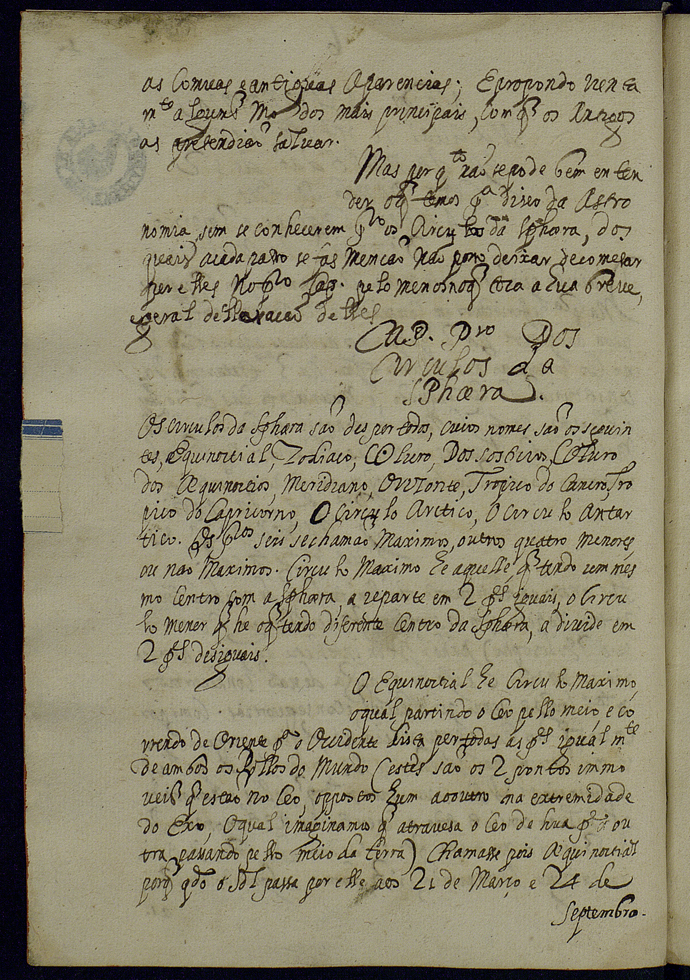 as Comuas e antiguas Aparencias; E propondo iuenta
m.to alguns Modos mais principais, com q̃ os Antigos
as pretendiaõ saluar.
Mas por q.to naõ se pode bem enten
der o q̃ temos p.a dizer da Astro
nomia, sem se conhecerem pr.o os Circulos da Sphæra, dos
quais a cada passo se fas mençaõ não posso deixar de começar
por elles No pr.o Cap. pelo menos no q̃ toca a hua breve,
e geral declaraçaõ delles
CAP. Pr.o Dos
Circulos da
Sphæra.
Os circulos da Sphæra saõ des por todos, cuios nomes saõ os seguin
tes, Equinoctial, Zodiaco, Coluro, Dos Solsticios, Coluro
dos Æquinoctios, Meridiano, Orizonte, Tropico do Cancro, Tro
pico do Capricorno, O Circulo Arctico, O Circulo Antar
tico. Os pr.os seis se chamaõ Maximos, outros quatro Menores,
ou naõ Maximos. Circulo Maximo he aquelle q̃ tendo um mes
mo Centro com a Sphæra, a reparte em 2 p.tes iguais, o Circu
lo menor q̃ he o q̃ tendo diferente Centro da Sphæra, a divide em
2 p.tes desiguais.
O Equinoctial he Circulo Maximo,
o qual partindo o Ceo pello meio, e co
rrendo de Oriente p.a o Occidente dista per todas as p.tes igual m.te
de ambos os Pollos do Mundo (estes saõ os 2 pontos immo
ueis q̃ estaõ no Ceo, oppostos hum ao outro na extremidade
do Exo, O qual imaginamos q̃ atravesa o Ceo de hua p.te a ou
tra passando pello meio da terra) Chamasse pois Æquinoctial
porq̃ q.do o Sol passa por elle aos 21 de Março e 24 de
Septembro.